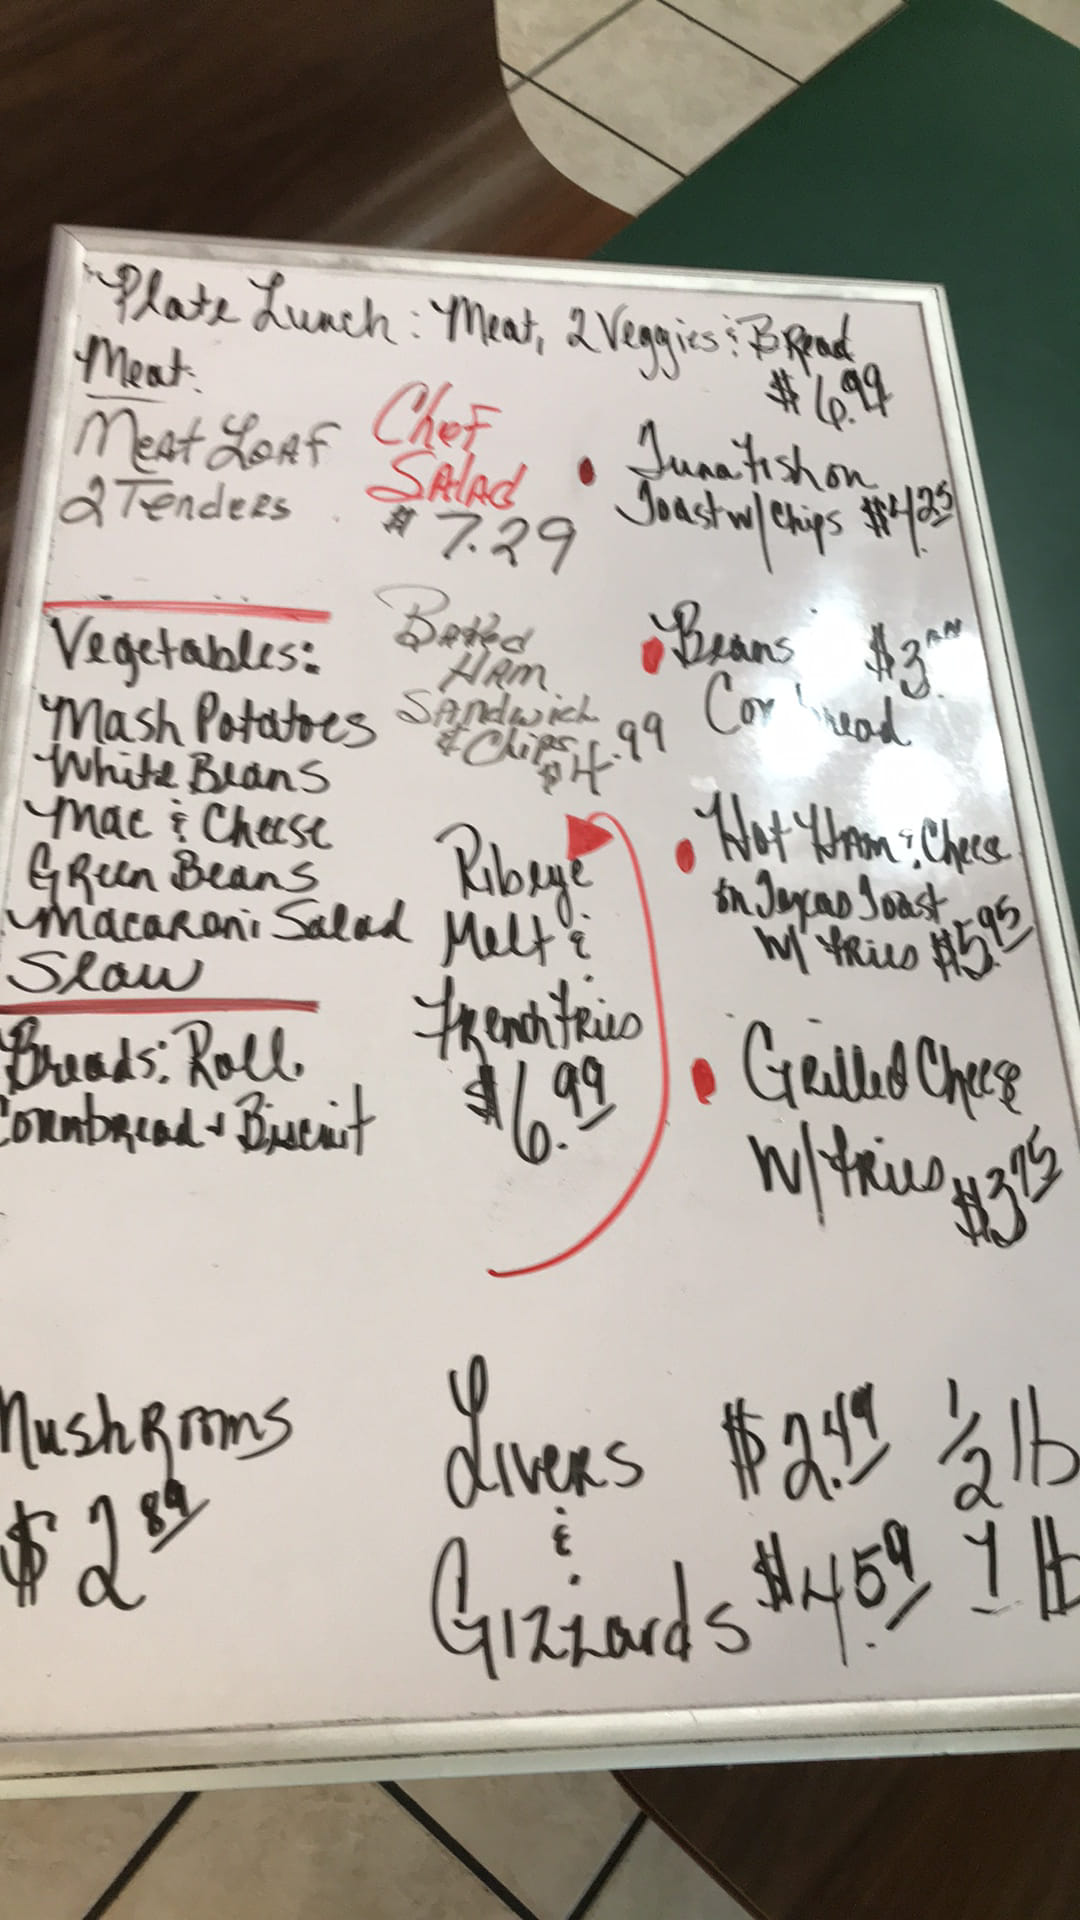 Plate Lunch: Meat, 2 Veggies & Bread
$6.99
Meat:
Meat Loaf
2 Tenders
Chef
Salad
$7.29
• Tuna Fish on
Toast w/ Chips $4.25
Vegetables:
Mash Potatoes
White Beans
Mac & Cheese
Green Beans
Macaroni Salad
Slaw
Breads: Roll
Cornbread + Biscuit
Baked
Ham
Sandwich
& Chips
$4.99
Ribeye
Melt &
French Fries
$6.99
• Beans
Cornbread
• Hot Ham & Cheese
on Texas Toast
w/ Fries $5.95
• Grilled Cheese
w/ Fries $3.75
Mushrooms
$2.89
Livers $2.49 1/2 lb
&
Gizzards $4.59 1 lb